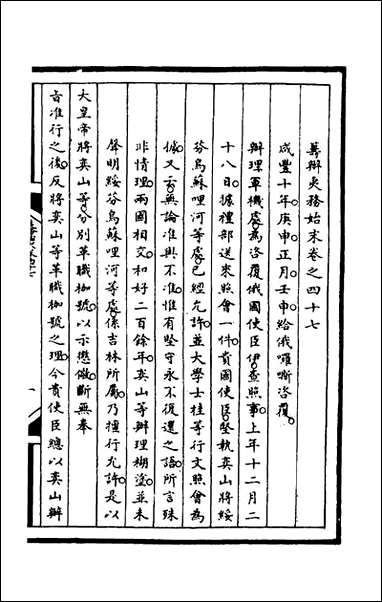 籌辦夷務始末卷之四十七
咸豐十年庚申正月壬申給俄囉嘶咨覆
辦理軍機處為咨覆俄國使臣伊查照事上年十二月二
十八日據禮部送來照會一件貴國使臣堅執奕山將綏
芬烏蘇哩河等處已經允許並大學士桂等行文照會為
憑又云無論准與不准惟有堅守永不復還之語所言殊
非情理兩國相交和好二百餘年奕山等辦理糊塗並未
聲明綏芬烏蘇哩河等處係吉林所屬乃擅行允許是以
大皇帝將奕山等分別革職枷號以示懲儆斷無奉
旨准行之後反將奕山等革職枷號之理今貴使臣總以奕山辦